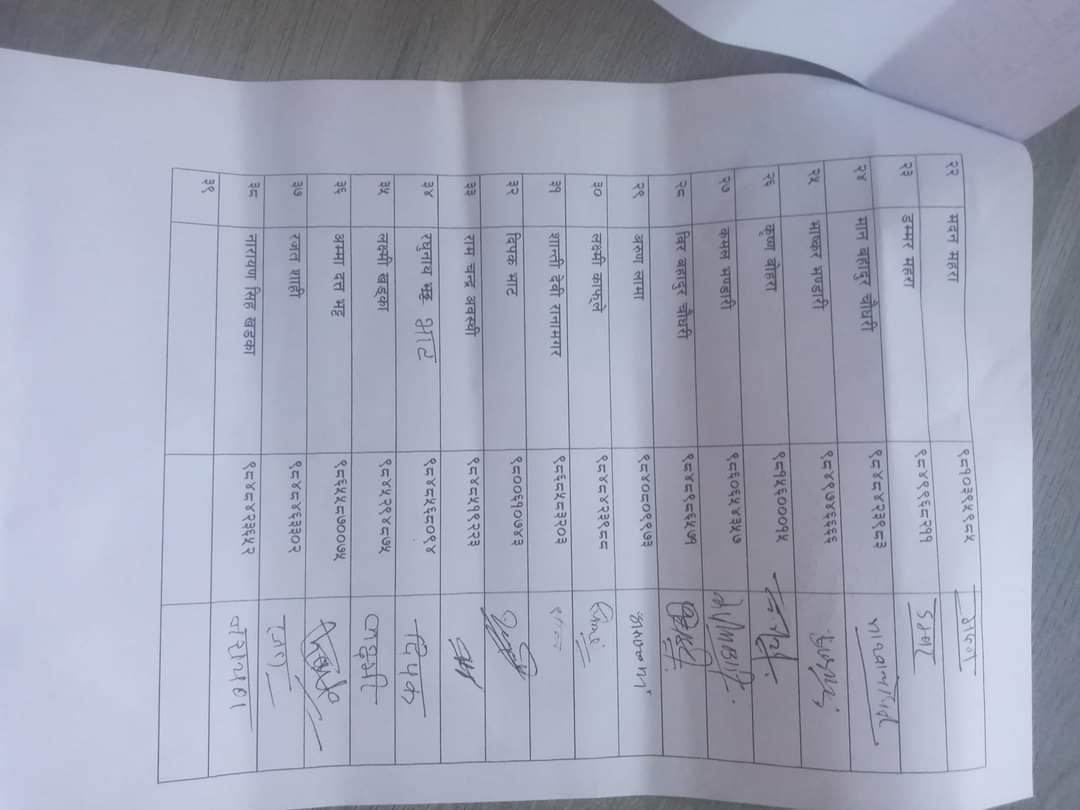 २२ मदन महरा ९८१०३९५९८५
२३ डम्मर महरा ९८४९९६८२११
२४ मान बहादुर चौधरी ९८४८४२३९८३
२५ भाष्कर भण्डारी ९८४९७४५६६६
२६ कृष्ण बोहरा ९८१५६०००१५
२७ कमल भण्डारी ९८६०६५४३५७
२८ बिर बहादुर चौधरी ९८४८९६५८७१
२९ अरुण लामा ९८४०८०९१७३
३० लक्ष्मी काफ्ले ९८४८४२३९८८
३१ शान्ती देवी रानामगर ९८६५८५३२०३
३२ दिपक भाट ९८००६१०७४३
३३ राम चन्द्र अवस्थी ९८४८५१९२२३
३४ रघुनाथ भाट ९८४८५६८०९४ दिपक
३५ लक्ष्मी खड्का ९८४५२९४८७५
३६ अम्मा दत्त भट्ट ९८६५५८७००७५
३७ रजत शाही ९८४८४६३३०२
३८ नारायण सिंह खड्का ९८४८४२३६५२ नारायण
३९